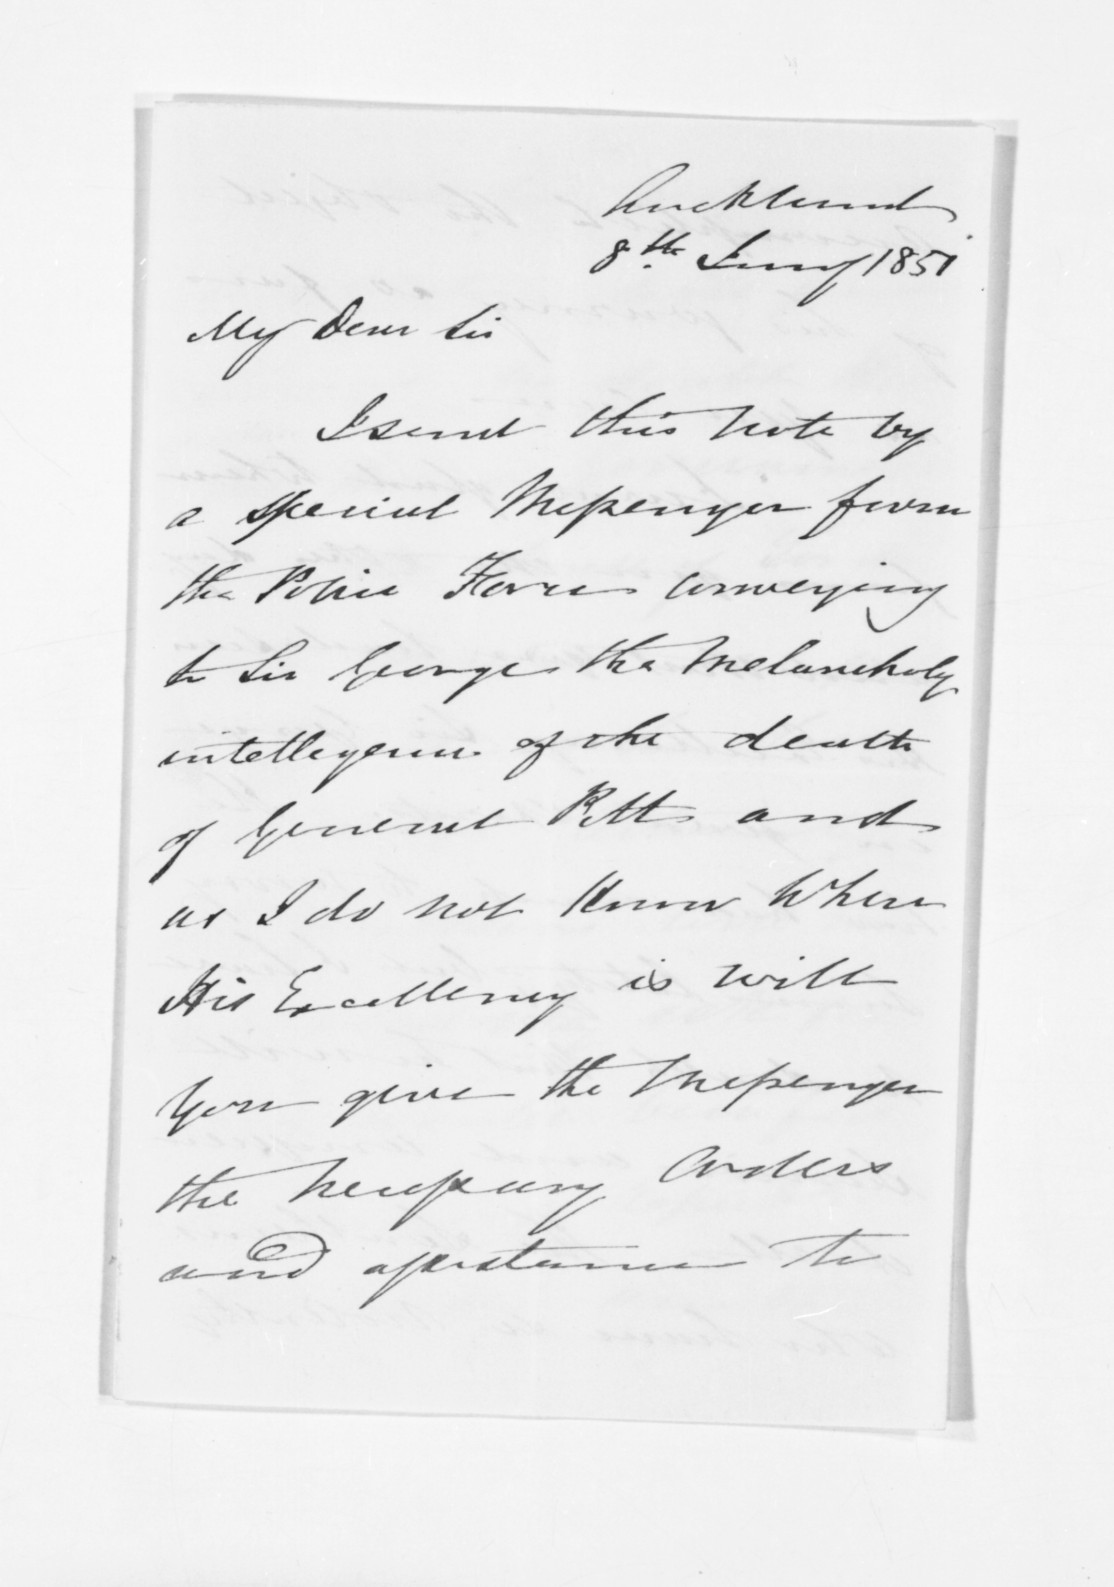 Auckland
8th Jany 1851
My Dear Sir
I send this note by
a special Messenger from
the Police Force conveying
to Sir George the Melancholy
intellegence of the death
of General Pitt and
as I do not Know Where
His Excellency is will
you give the Messenger
the necessary orders
and assistance to